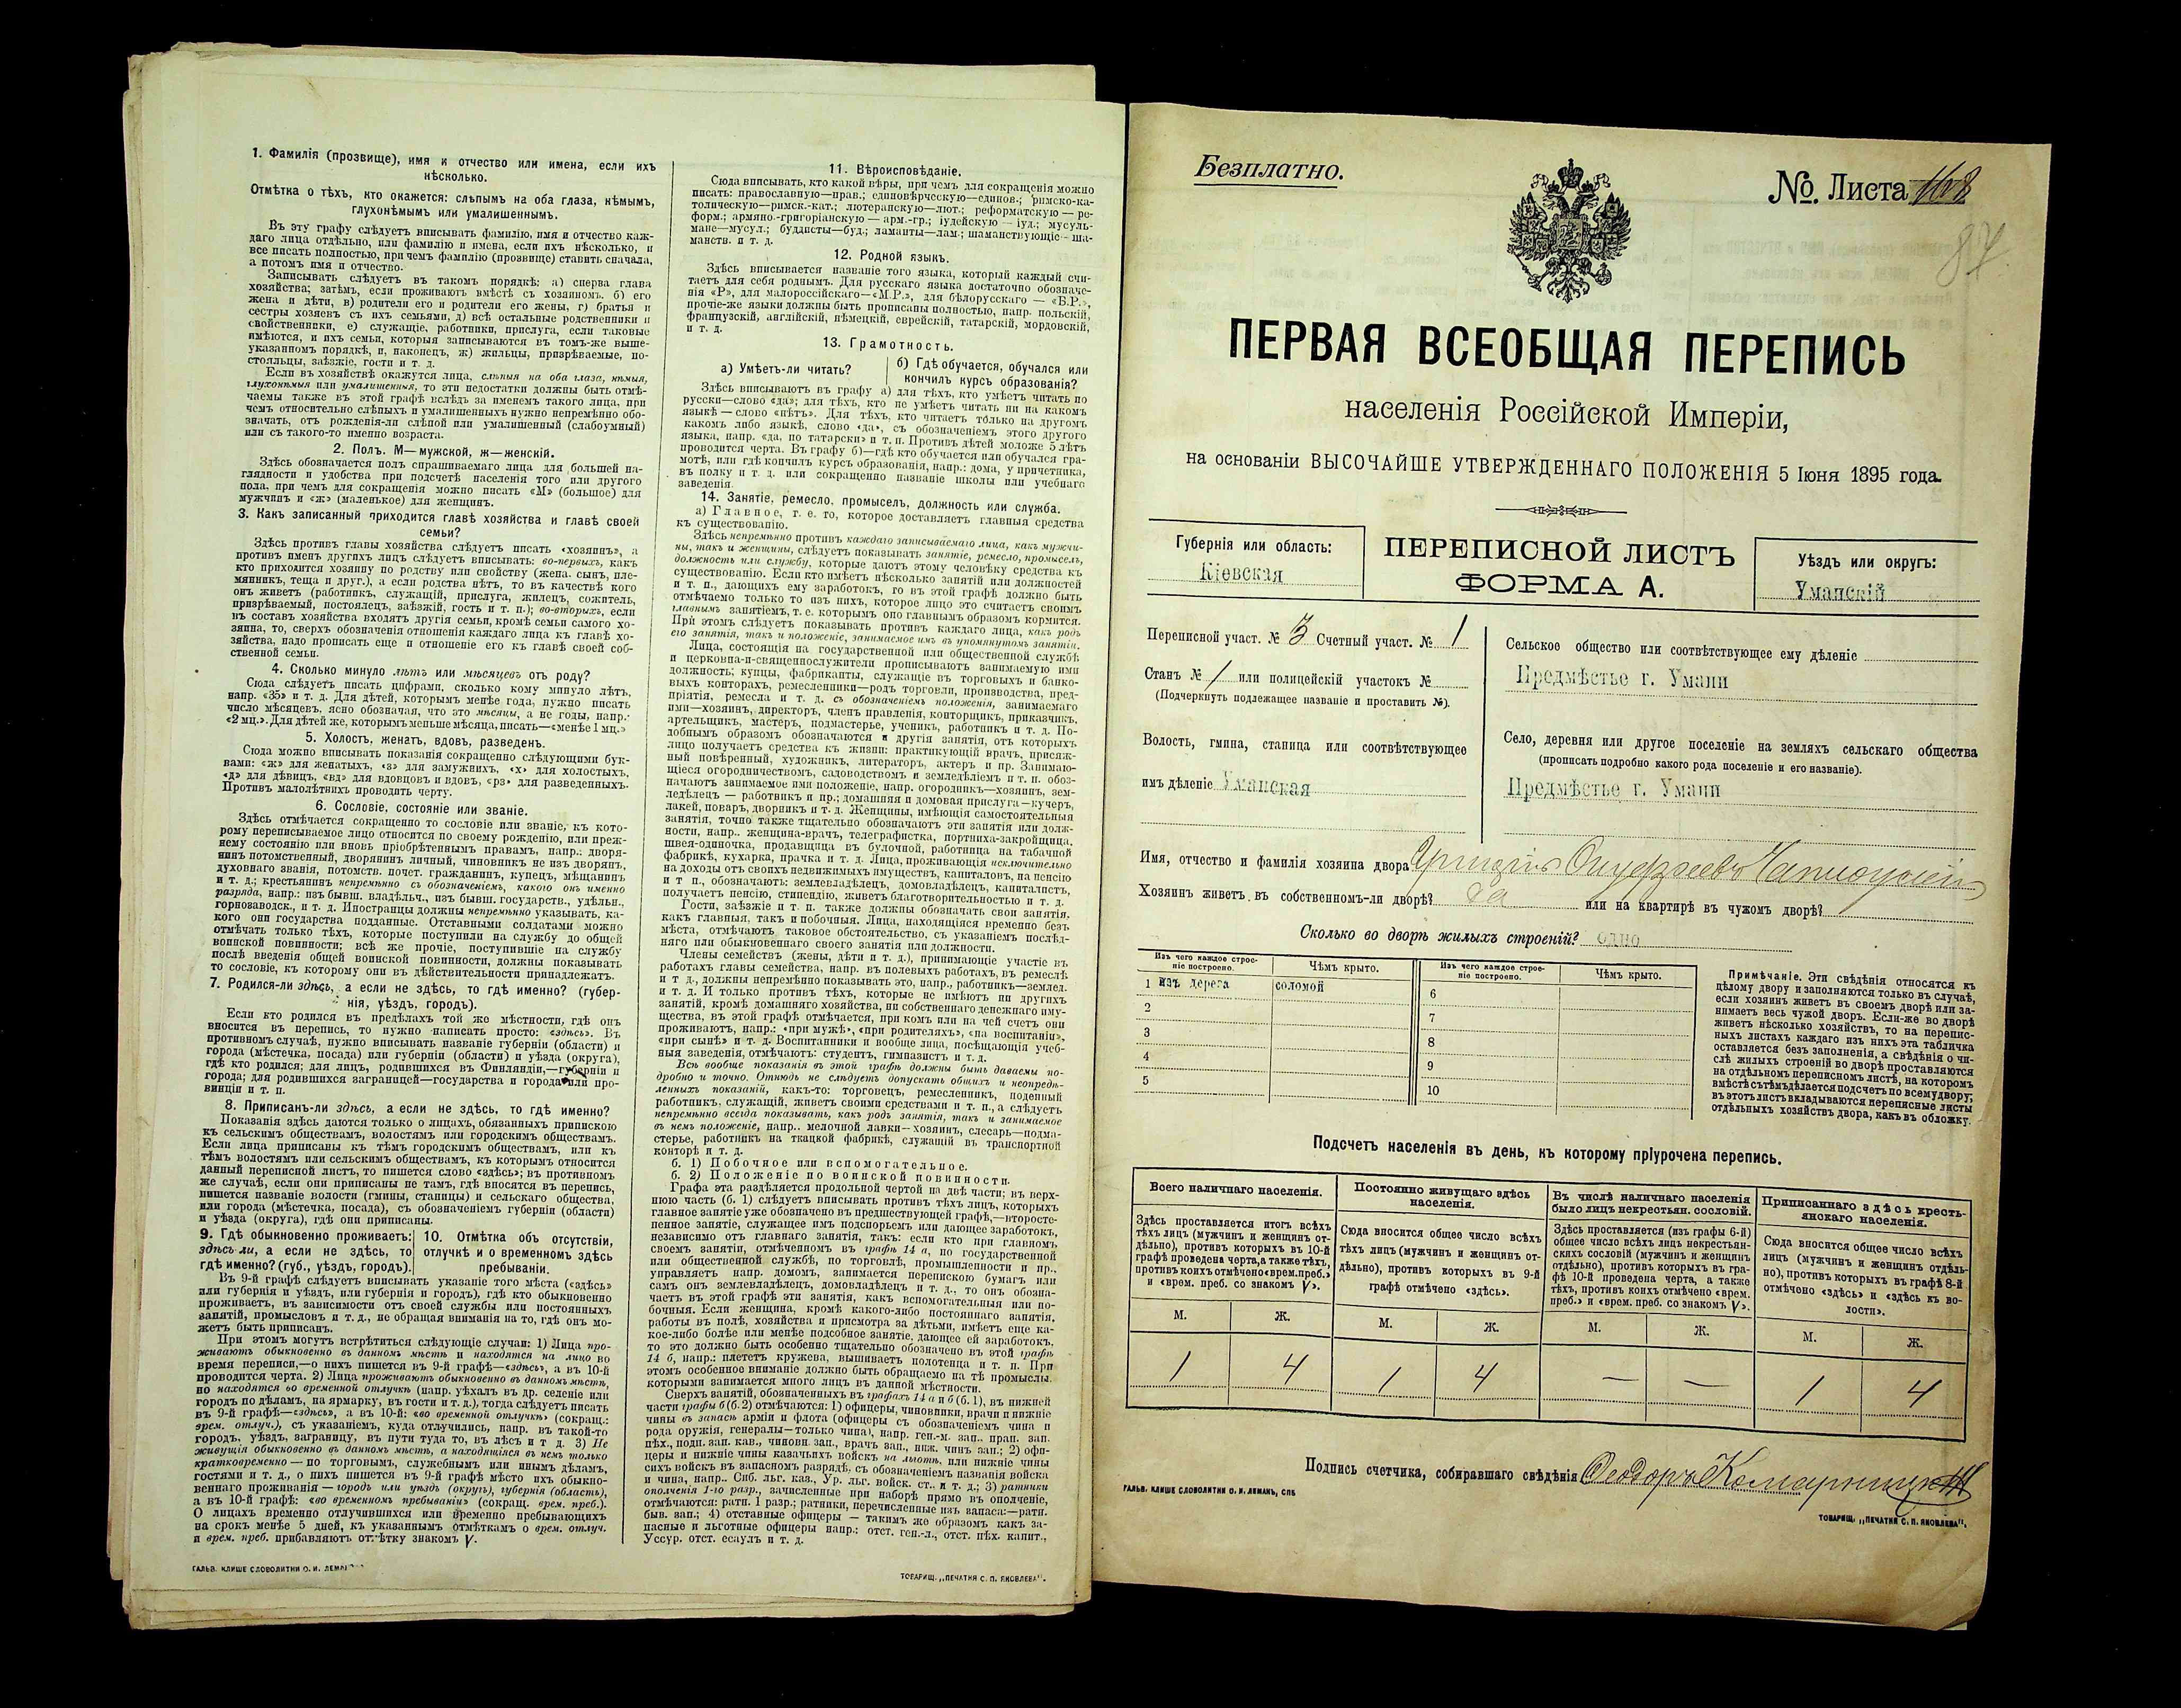 1. Фамилія (прозвище), имя и отчество или имена, если ихъ
нѣсколько.
Отмѣтка о тѣхъ, кто окажется: слѣпымъ на оба глаза, нѣмымъ,
глухонѣмымъ или умалишеннымъ.
Въ эту графу слѣдуетъ вписывать фамилію, имя и отчество каж-
даго лица отдѣльно, или фамилію и имена, если ихъ нѣсколько, и
все писать полностью, при чемъ фамилію (прозвище) ставить сначала,
а потомъ имя и отчество.
Записывать слѣдуетъ въ такомъ порядкѣ: а) сперва глава
хозяйства; затѣмъ, если проживаютъ вмѣстѣ съ хозяиномъ. б) его
жена и дѣти, в) родители его и родители его жены, г) братья и
сестры хозяевъ съ ихъ семьями, д) всѣ остальные родственники и
свойственники, е) служащіе, работники, прислуга, если таковые
имѣются, и ихъ семьи, которыя записываются въ томъ-же выше-
указанномъ порядкѣ, и, наконецъ, ж) жильцы, призрѣваемые, по-
стояльцы, заѣзжіе, гости и т. д.
Если въ хозяйствѣ окажутся лица, слѣпыя на оба глаза, нѣмыя,
глухонѣмыя или умалишенныя, то эти недостатки должны быть отмѣ-
чаемы также въ этой графѣ вслѣдъ за именемъ такого лица, при
чемъ относительно слѣпыхъ и умалишенныхъ нужно непремѣнно обо-
значать, отъ рожденія-ли слѣпой или умалишенный (слабоумный)
или съ такого-то именно возраста.
2. Полъ. М—мужской, ж—женскій.
Здѣсь обозначается полъ спрашиваемаго лица для большей на-
глядности и удобства при подсчетѣ населенія того или другого
пола, при чемъ для сокращенія можно писать «М» (большое) для
мужчинъ и «ж» (маленькое) для женщинъ.
3. Какъ записанный приходится главѣ хозяйства и главѣ своей
семьи?
Здѣсь противъ главы хозяйства слѣдуетъ писать «хозяинъ», а
противъ именъ другихъ лицъ слѣдуетъ вписывать: во-первыхъ, какъ
кто приходится хозяину по родству или свойству (жена. сынъ, пле-
мянникъ, теща и друг.), а если родства нѣтъ, то въ качествѣ кого
онъ живетъ (работникъ, служащій, прислуга, жилецъ, сожитель,
призрѣваемый, постоялецъ, заѣзжій, гость и т. п.); во-вторыхъ, если
въ составъ хозяйства входятъ другія семьи, кромѣ семьи самого хо-
зяина, то, сверхъ обозначенія отношенія каждаго лица къ главѣ хо-
зяйства, надо прописать еще и отношеніе его къ главѣ своей соб-
ственной семьи.
4. Сколько минуло лѣтъ или мѣсяцевъ отъ роду?
Сюда слѣдуетъ писать цифрами, сколько кому минуло лѣтъ,
напр. «35» и т. д. Для дѣтей, которымъ менѣе года, нужно писать
число мѣсяцевъ, ясно обозначая, что это мѣсяцы, а не годы, напр.:
«2 мц.». Для дѣтей же, которымъ меньше мѣсяца, писать—«менѣе 1 мц.»
5. Холостъ, женатъ, вдовъ, разведенъ.
Сюда можно вписывать показанія сокращенно слѣдующими бук-
вами: «ж» для женатыхъ, «з» для замужнихъ, «х» для холостыхъ,
«д» для дѣвицъ, «вд» для вдовцовъ и вдовъ, «рз» для разведенныхъ.
Противъ малолѣтнихъ проводить черту.
6. Сословіе, состояніе или званіе.
Здѣсь отмѣчается сокращенно то сословіе или званіе, къ кото-
рому переписываемое лицо относится по своему рожденію, или преж-
нему состоянію или вновь пріобрѣтеннымъ правамъ, напр.: дворя-
нинъ потомственный, дворянинъ личный, чиновникъ не изъ дворянъ,
духовнаго званія, потомств. почет. гражданинъ, купецъ, мѣщанинъ
и т. д.; крестьянинъ непремѣнно съ обозначеніемъ, какого онъ именно
разряда, напр.: изъ бывш. владѣльч., изъ бывш. государств., удѣльн.,
горнозаводск., и т. д. Иностранцы должны непремѣнно указывать, ка-
кого они государства подданные. Отставными солдатами можно
отмѣчать только тѣхъ, которые поступили на службу до общей
воинской повинности; всѣ же прочіе, поступившіе на службу
послѣ введенія общей воинской повинности, должны показывать
то сословіе, къ которому они въ дѣйствительности принадлежатъ.
7. Родился-ли здѣсь, а если не здѣсь, то гдѣ именно? (губер-
нія, уѣздъ, городъ).
Если кто родился въ предѣлахъ той же мѣстности, гдѣ онъ
вносится въ перепись, то нужно написать просто: «здѣсь». Въ
противномъ случаѣ, нужно вписывать названіе губерніи (области) и
города (мѣстечка, посада) или губерніи (области) и уѣзда (округа),
гдѣ кто родился; для лицъ, родившихся въ Финляндіи,—губерніи и
города; для родившихся заграницей—государства и города или про-
винціи и т. п.
8. Приписанъ-ли здѣсь, а если не здѣсь, то гдѣ именно?
Показанія здѣсь даются только о лицахъ, обязанныхъ припискою
къ сельскимъ обществамъ, волостямъ или городскимъ обществамъ.
Если лица приписаны къ тѣмъ городскимъ обществамъ, или къ
тѣмъ волостямъ или сельскимъ обществамъ, къ которымъ относится
данный переписной листъ, то пишется слово «здѣсь»; въ противномъ
же случаѣ, если они приписаны не тамъ, гдѣ вносятся въ перепись,
пишется названіе волости (гмины, станицы) и сельскаго общества,
или города (мѣстечка, посада), съ обозначеніемъ губерніи (области)
и уѣзда (округа), гдѣ они приписаны.
9. Гдѣ обыкновенно проживаетъ:
здѣсь-ли, а если не здѣсь, то
гдѣ именно? (губ., уѣздъ, городъ).
10. Отмѣтка объ отсутствіи,
отлучкѣ и о временномъ здѣсь
пребываніи.
Въ 9-й графѣ слѣдуетъ вписывать указаніе того мѣста («здѣсь»
или губернія и уѣздъ, или губернія и городъ), гдѣ кто обыкновенно
проживаетъ, въ зависимости отъ своей службы или постоянныхъ
занятій, промысловъ и т. д., не обращая вниманія на то, гдѣ онъ мо-
жетъ быть приписанъ.
При этомъ могутъ встрѣтиться слѣдующіе случаи: 1) Лица про-
живаютъ обыкновенно въ данномъ мѣстѣ и находятся на лицо во
время переписи,—о нихъ пишется въ 9-й графѣ—«здѣсь», а въ 10-й
проводится черта. 2) Лица проживаютъ обыкновенно въ данномъ мѣстѣ,
но находятся во временной отлучкѣ (напр. уѣхалъ въ др. селеніе или
городъ по дѣламъ, на ярмарку, въ гости и т. д.), тогда слѣдуетъ писать
въ 9-й графѣ—«здѣсь», а въ 10-й: «во временной отлучкѣ» (сокращ.:
врем. отлуч.), съ указаніемъ, куда отлучились, напр. въ такой-то
городъ, уѣздъ, заграницу, въ пути туда то, въ лѣсъ и т д. 3) Не
живущія обыкновенно въ данномъ мѣстѣ, а находящіяся въ немъ только
кратковременно — по торговымъ, служебнымъ или инымъ дѣламъ,
гостями и т. д., о нихъ пишется въ 9-й графѣ мѣсто ихъ обыкно-
веннаго проживанія — городъ или уѣздъ (округъ), губернія (область),
а въ 10-й графѣ: «во временномъ пребываніи» (сокращ. врем. преб.).
О лицахъ временно отлучившихся или временно пребывающихъ
на срокъ менѣе 5 дней, къ указаннымъ отмѣткамъ о врем. отлуч.
и врем. преб. прибавляютъ отмѣтку знакомъ V.
ГАЛЬВ. КЛИШЕ СЛОВОЛИТНИ О. И. ЛЕМАН
11. Вѣроисповѣданіе.
Сюда вписывать, кто какой вѣры, при чемъ для сокращенія можно
писать: православную—прав.; единовѣрческую—единов.; римско-ка-
толическую—римск.-кат.; лютеранскую—лют.; реформатскую — ре-
форм.; армяно.-григоріанскую — арм.-гр.; іудейскую — іуд.; мусуль-
мане—мусул.; буддисты—буд.; ламаиты—лам.; шаманствующіе—ша-
манств. и т. д.
12. Родной языкъ.
Здѣсь вписывается названіе того языка, который каждый счи-
таетъ для себя роднымъ. Для русскаго языка достаточно обозначе-
нія «Р», для малороссійскаго—«М.Р.», для бѣлорусскаго — «Б.Р.»,
прочіе-же языки должны быть прописаны полностью, напр. польскій,
французскій, англійскій, нѣмецкій, еврейскій, татарскій, мордовскій,
и т. д.
13. Грамотность.
а) Умѣетъ-ли читать?
б) Гдѣ обучается, обучался или
кончилъ курсъ образованія?
Здѣсь вписываютъ въ графу а) для тѣхъ, кто умѣетъ читать по
русски—слово «да»; для тѣхъ, кто не умѣетъ читать ни на какомъ
языкѣ — слово «нѣтъ». Для тѣхъ, кто читаетъ только на другомъ
какомъ либо языкѣ, слово «да», съ обозначеніемъ этого другого
языка, напр. «да, по татарски» и т. п. Противъ дѣтей моложе 5 лѣтъ
проводится черта. Въ графу б)—гдѣ кто обучается или обучался гра-
мотѣ, или гдѣ кончилъ курсъ образованія, напр.: дома, у причетника,
въ полку и т. д. или сокращенно названіе школы или учебнаго
заведенія.
14. Занятіе, ремесло, промыселъ, должность или служба.
а) Главное, т. е. то, которое доставляетъ главныя средства
къ существованію.
Здѣсь непремѣнно противъ каждаго записываемаго лица, какъ мужчи-
ны, такъ и женщины, слѣдуетъ показывать занятіе, ремесло, промыселъ,
должность или службу, которые даютъ этому человѣку средства къ
существованію. Если кто имѣетъ нѣсколько занятій или должностей
и т. п., дающихъ ему заработокъ, то въ этой графѣ должно быть
отмѣчаемо только то изъ нихъ, которое лицо это считаетъ своимъ
главнымъ занятіемъ, т. е. которымъ оно главнымъ образомъ кормится.
При этомъ слѣдуетъ показывать противъ каждаго лица, какъ родъ
его занятія, такъ и положеніе, занимаемое имъ въ упомянутомъ занятіи.
Лица, состоящія на государственной или общественной службѣ
и церковно-и-священнослужители прописываютъ занимаемую ими
должность; купцы, фабриканты, служащіе въ торговыхъ и банко-
выхъ конторахъ, ремесленники—родъ торговли, производства, пред-
пріятія, ремесла и т. д. съ обозначеніемъ положенія, занимаемаго
ими—хозяинъ, директоръ, членъ правленія, конторщикъ, приказчикъ,
артельщикъ, мастеръ, подмастерье, ученикъ, работникъ и т. д. По-
добнымъ образомъ обозначаются и другія занятія, отъ которыхъ
лицо получаетъ средства къ жизни: практикующій врачъ, присяж-
ный повѣренный, художникъ, литераторъ, актеръ и пр. Занимаю-
щіеся огородничествомъ, садоводствомъ и земледѣліемъ и т. п. обоз-
начаютъ занимаемое ими положеніе, напр. огородникъ—хозяинъ, зем-
ледѣлецъ — работникъ и пр.; домашняя и домовая прислуга—кучеръ,
лакей, поваръ, дворникъ и т. д. Женщины, имѣющія самостоятельныя
занятія, точно также тщательно обозначаютъ эти занятія или долж-
ности, напр.. женщина-врачъ, телеграфистка, портниха-закройщица,
швея-одиночка, продавщица въ булочной, работница на табачной
фабрикѣ, кухарка, прачка и т. д. Лица, проживающія исключительно
на доходы отъ своихъ недвижимыхъ имуществъ, капиталовъ, на пенсію
и т п., обозначаютъ: землевладѣлецъ, домовладѣлецъ, капиталистъ,
получаетъ пенсію, стипендію, живетъ благотворительностью и т. д.
Гости, заѣзжіе и т. п. также должны обозначать свои занятія.
какъ главныя, такъ и побочныя. Лица, находящіяся временно безъ
мѣста, отмѣчаютъ таковое обстоятельство, съ указаніемъ послѣд-
няго или обыкновеннаго своего занятія или должности.
Члены семействъ (жены, дѣти и т. д.), принимающіе участіе въ
работахъ главы семейства, напр. въ полевыхъ работахъ, въ ремеслѣ
и т д., должны непремѣнно показывать это, напр., работникъ—землед.
и т. д. И только противъ тѣхъ, которые не имѣютъ ни другихъ
занятій, кромѣ домашняго хозяйства, ни собственнаго денежнаго иму-
щества, въ этой графѣ отмѣчается, при комъ или на чей счетъ они
проживаютъ, напр.: «при мужѣ», «при родителяхъ», «на воспитаніи»,
«при сынѣ» и т. д. Воспитанники и вообще лица, посѣщающія учеб-
ныя заведенія, отмѣчаютъ: студентъ, гимназистъ и т. д.
Всѣ вообще показанія въ этой графѣ должны быть даваемы по-
дробно и точно. Отнюдь не слѣдуетъ допускать общихъ и неопредѣ-
ленныхъ показаній, какъ-то: торговецъ, ремесленникъ, поденный
работникъ, служащій, живетъ своими средствами и т. п., а слѣдуетъ
непремѣнно всегда показывать, какъ родъ занятія, такъ и занимаемое
въ немъ положеніе, напр.. мелочной лавки—хозяинъ, слесарь—подма-
стерье, работникъ на ткацкой фабрикѣ, служащій въ транспортной
конторѣ и т. д.
б. 1) Побочное или вспомогательное.
б. 2) Положеніе по воинской повинности.
Графа эта раздѣляется продольной чертой на двѣ части; въ верх-
нюю часть (б. 1) слѣдуетъ вписывать противъ тѣхъ лицъ, которыхъ
главное занятіе уже обозначено въ предшествующей графѣ,—второсте-
пенное занятіе, служащее имъ подспорьемъ или дающее заработокъ,
независимо отъ главнаго занятія, такъ: если кто при главномъ
своемъ занятіи, отмѣченномъ въ графѣ 14 а, по государственной
или общественной службѣ, по торговлѣ, промышленности и пр.,
управляетъ напр. домомъ, занимается перепискою бумагъ или
самъ онъ землевладѣлецъ, домовладѣлецъ и т. д., то онъ обозна-
чаетъ въ этой графѣ эти занятія, какъ вспомогательныя или по-
бочныя. Если женщина, кромѣ какого-либо постояннаго занятія,
работы въ полѣ, хозяйства и присмотра за дѣтьми, имѣетъ еще ка-
кое-либо болѣе или менѣе подсобное занятіе, дающее ей заработокъ,
то это должно быть особенно тщательно обозначено въ этой графѣ
14 б, напр.: плететъ кружева, вышиваетъ полотенца и т. п. При
этомъ особенное вниманіе должно быть обращаемо на тѣ промыслы,
которыми занимается много лицъ въ данной мѣстности.
Сверхъ занятій, обозначенныхъ въ графахъ 14 а и б (б. 1), въ нижней
части графы б (б. 2) отмѣчаются: 1) офицеры, чиновники, врачи и нижніе
чины въ запасѣ арміи и флота (офицеры съ обозначеніемъ чина и
рода оружія, генералы—только чина), напр. ген.-м. зап.. прап. зап.
пѣх., подп. зап. кав., чиновн. зап., врачъ зап., ниж. чинъ зап.; 2) офи-
церы и нижніе чины казачьихъ войскъ на льготѣ, или нижніе чины
сихъ войскъ въ запасномъ разрядѣ, съ обозначеніемъ названія войска
и чина, напр.. Сиб. льг. каз., Ур. льг. войск. ст.. и т. д.; 3) ратники
ополченія 1-го разр., зачисленные при наборѣ прямо въ ополченіе,
отмѣчаются: ратн. 1 разр.; ратники, перечисленные изъ запаса:—ратн.
быв. зап.; 4) отставные офицеры — такимъ же образомъ какъ за-
пасные и льготные офицеры напр.: отст. ген.-л., отст. пѣх. капит.,
Уссур. отст. есаулъ и т. д.
ТОВАРИЩ. „ПЕЧАТНЯ С. П. ЯКОВЛЕВА".
Безплатно.
№. Листа 168
84
ПЕРВАЯ ВСЕОБЩАЯ ПЕРЕПИСЬ
населенія Россійской Имперіи,
на основаніи ВЫСОЧАЙШЕ УТВЕРЖДЕННАГО ПОЛОЖЕНІЯ 5 Іюня 1895 года.
Губернія или область:
Кіевская
ПЕРЕПИСНОЙ ЛИСТЪ
ФОРМА А.
Уѣздъ или округъ:
Уманскій
Переписной участ. № 3 Счетный участ. № 1
Станъ № 1 или полицейскій участокъ №
(Подчеркнуть подлежащее названіе и проставить №).
Волость, гмина, станица или соотвѣтствующее
имъ дѣленіе Уманская
Сельское общество или соотвѣтствующее ему дѣленіе
Предмѣстье г. Умани
Село, деревня или другое поселеніе на земляхъ сельскаго общества
(прописать подробно какого рода поселеніе и его названіе).
Предмѣстье г. Умани
Имя, отчество и фамилія хозяина двора
Хозяинъ живетъ въ собственномъ-ли дворѣ? да или на квартирѣ въ чужомъ дворѣ?
Сколько во дворѣ жилыхъ строеній? одно
Изъ чего каждое строе-
ніе построено.
Чѣмъ крыто.
Изъ чего каждое строе-
ніе построено.
Чѣмъ крыто.
1 изъ дерева соломой
2
3
4
5
6
7
8
9
10
Примѣчаніе. Эти свѣдѣнія относятся къ
цѣлому двору и заполняются только въ случаѣ,
если хозяинъ живетъ въ своемъ дворѣ или за-
нимаетъ весь чужой дворъ. Если-же во дворѣ
живетъ нѣсколько хозяйствъ, то на перепис-
ныхъ листахъ каждаго изъ нихъ эта табличка
оставляется безъ заполненія, а свѣдѣнія о чи-
слѣ жилыхъ строеній во дворѣ проставляются
на отдѣльномъ переписномъ листѣ, на которомъ
вмѣстѣ съ тѣмъ дѣлается подсчетъ по всему двору;
въ этотъ листъ вкладываются переписные листы
отдѣльныхъ хозяйствъ двора, какъ въ обложку.
Подсчетъ населенія въ день, къ которому пріурочена перепись.
Всего наличнаго населенія.
Здѣсь проставляется итогъ всѣхъ
тѣхъ лицъ (мужчинъ и женщинъ от-
дѣльно), противъ которыхъ въ 10-й
графѣ проведена черта, а также тѣхъ,
противъ коихъ отмѣчено «врем. преб.»
и «врем. преб. со знакомъ V».
Постоянно живущаго здѣсь
населенія.
Сюда вносится общее число всѣхъ
тѣхъ лицъ (мужчинъ и женщинъ от-
дѣльно), противъ которыхъ въ 9-й
графѣ отмѣчено «здѣсь».
Въ числѣ наличнаго населенія
было лицъ некрестьян. сословій.
Здѣсь проставляется (изъ графы 6-й)
общее число всѣхъ лицъ некрестьян-
скихъ сословій (мужчинъ и женщинъ
отдѣльно), противъ которыхъ въ гра-
фѣ 10-й проведена черта, а также
тѣхъ, противъ коихъ отмѣчено «врем.
преб.» и «врем. преб. со знакомъ V».
Приписаннаго здѣсь кресть-
янскаго населенія.
Сюда вносится общее число всѣхъ
лицъ (мужчинъ и женщинъ отдѣль-
но), противъ которыхъ въ графѣ 8-й
отмѣчено «здѣсь» и «здѣсь къ во-
лости».
М. Ж. М. Ж. М. Ж. М. Ж.
1 4 1 4 — — 1 4
Подпись счетчика, собиравшаго свѣдѣнія Ѳеодоръ
ГАЛЬВ. КЛИШЕ СЛОВОЛИТНИ О. И. ЛЕМАНЪ, СПБ
ТОВАРИЩ. „ПЕЧАТНЯ С. П. ЯКОВЛЕВА".